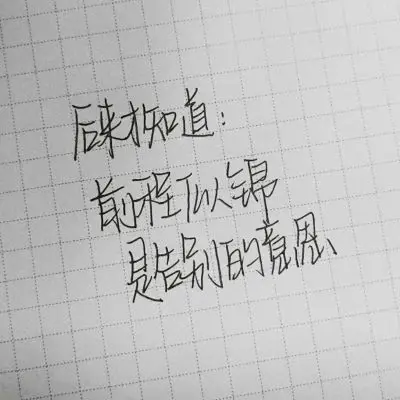 后来才知道:
前程似锦
是告别的意思